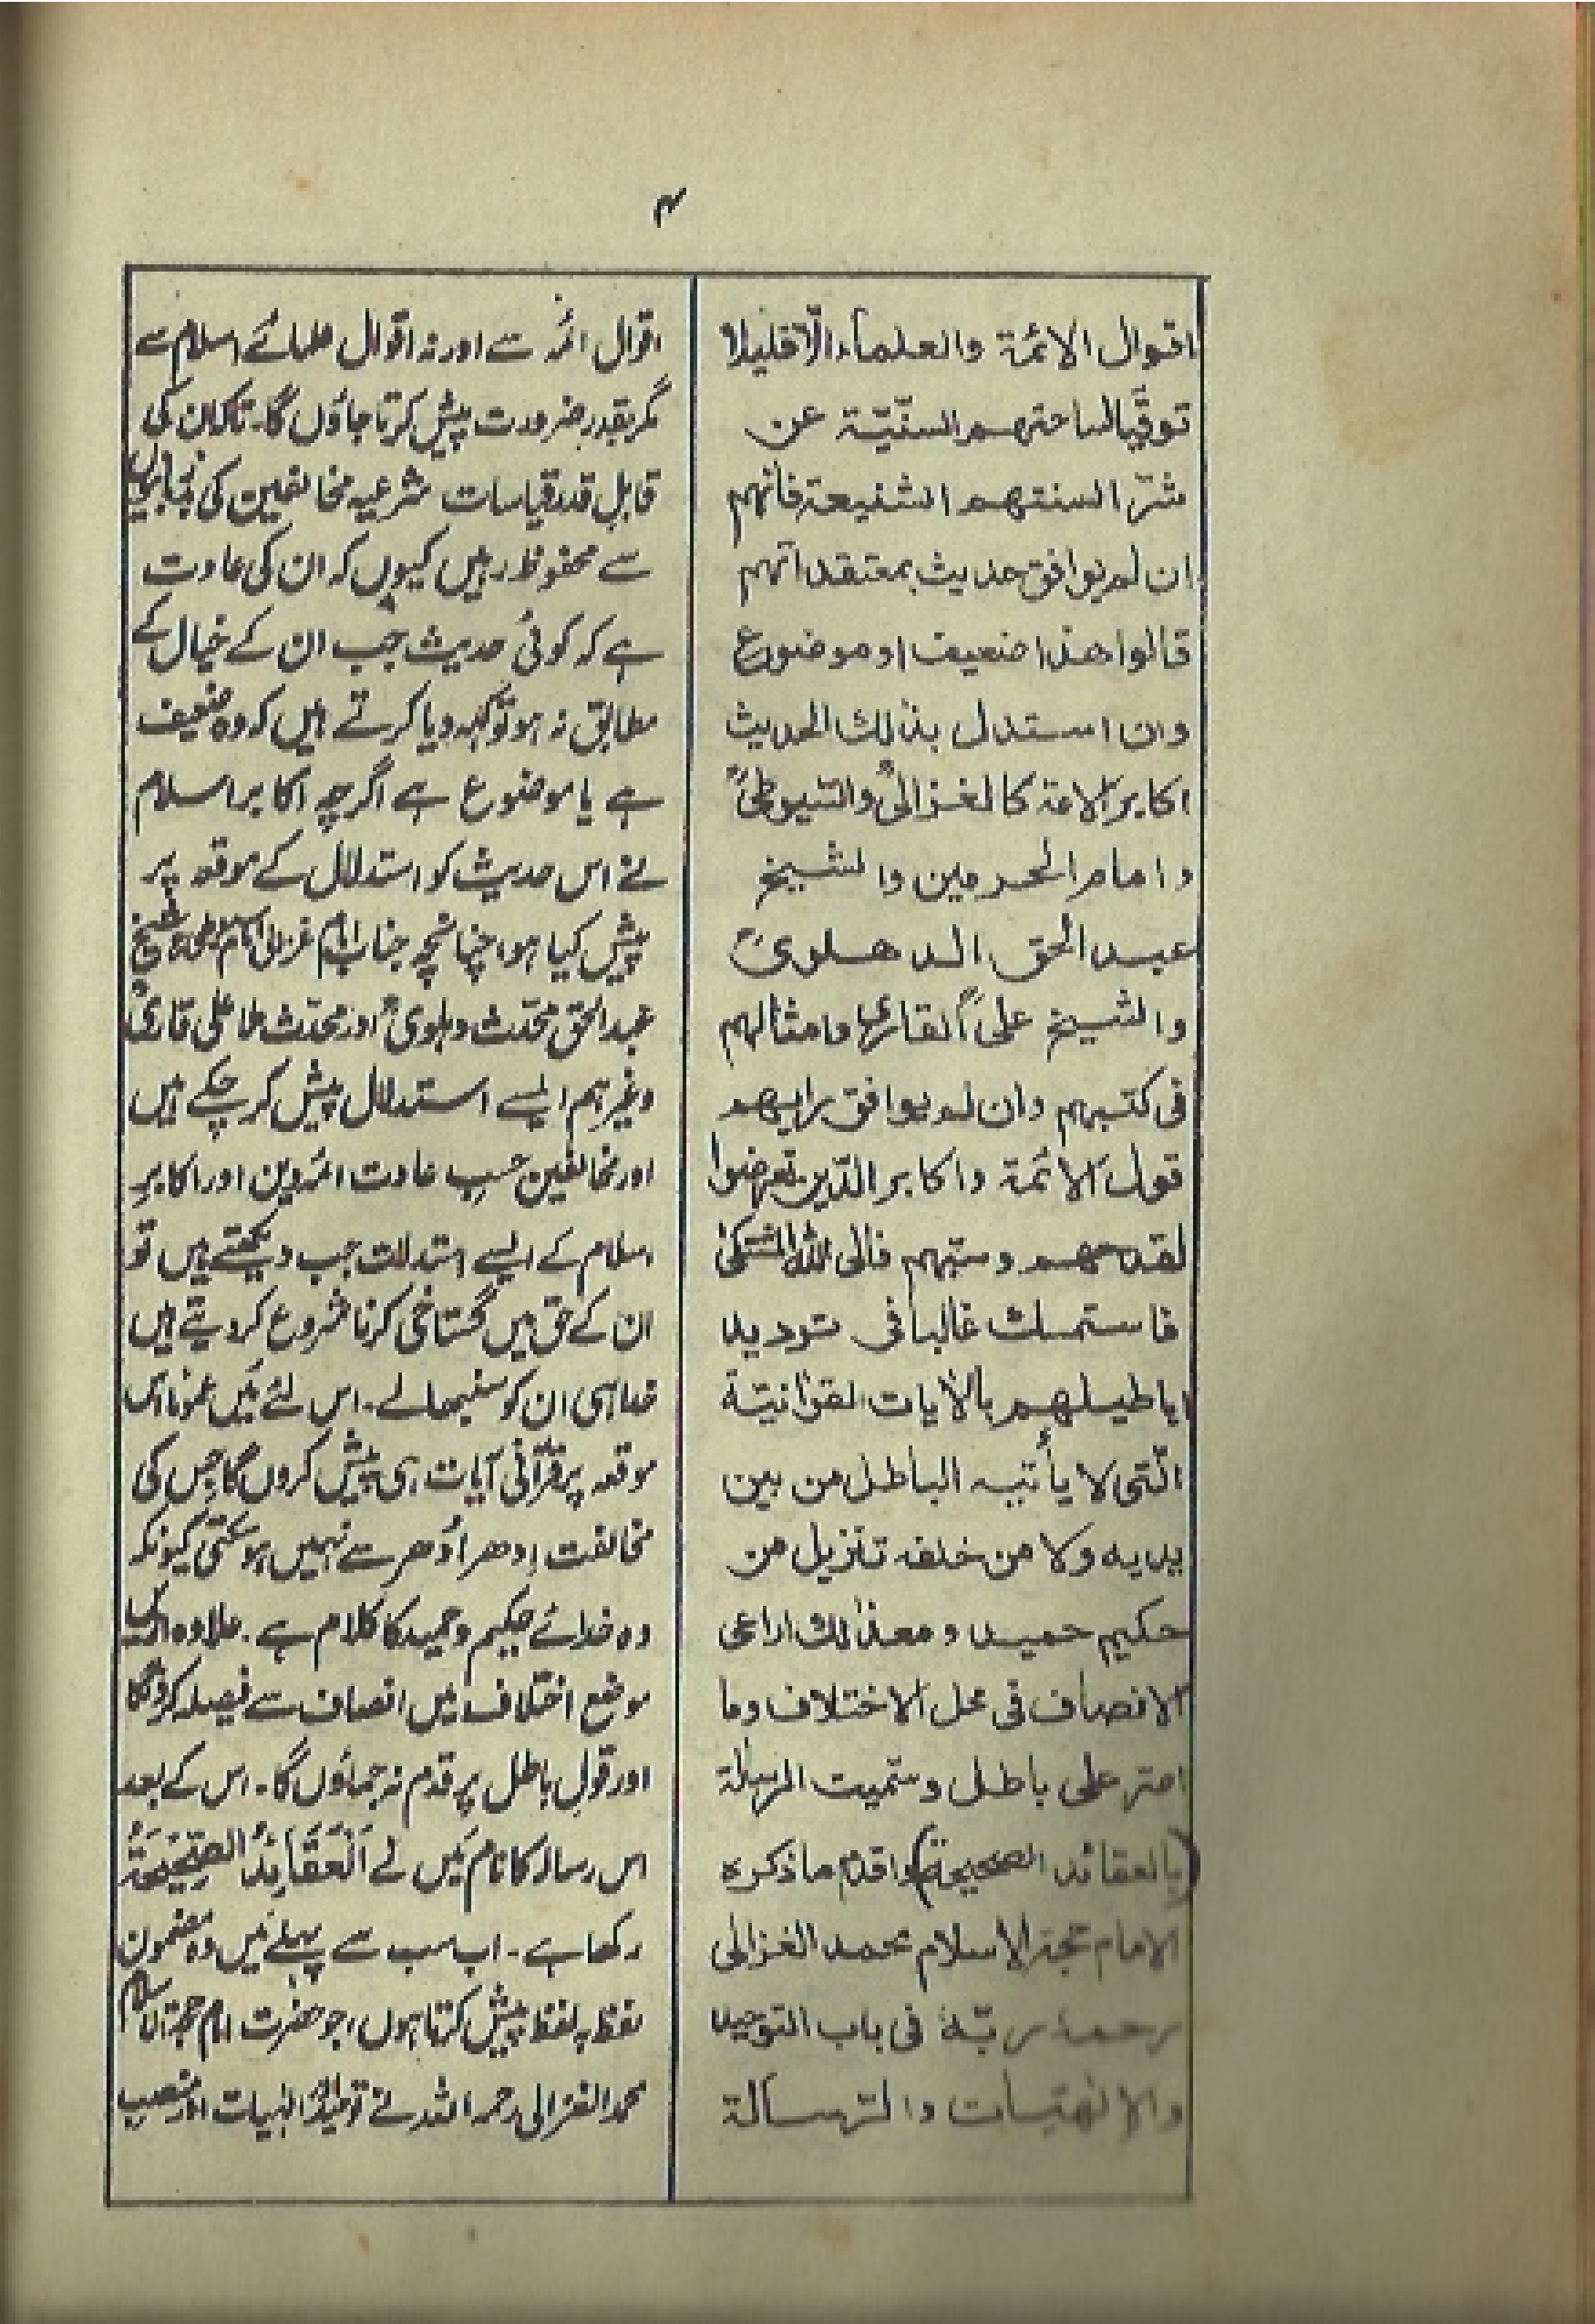 ۴
اقوال الائمۃ والعلماء الّا قلیلا
توقّیا لساحتهم السنّیّة عن
شرّ السنتهم الشنیعة فانّهم
ان لم یوافق حدیث بمعتقداتهم
قالوا هذا ضعیف او موضوع
وان استدل بذٰلك الحدیث
اکابر الامة کالغزالیؒ والسّیوطیؒ
وامام الحرمین والشیخ
عبد الحق الدهلویؒ
والشیخ علیؒ القاری وامثالهم
فی کتبهم وان لم یوافق رایهم
قول الائمة واکابر الدّین تعرضوا
لقدحهم وسبّهم فالی اللّٰه المشتکیٰ
فاستمسك غالبا فی تردید
اباطیلهم بالاٰیات القراٰنیّة
الّتی لا یأتیه الباطل من بین
یدیه ولا من خلفه تنزیل من
حکیم حمید ومع ذٰلك اراعی
الانصاف فی محل الاختلاف وما
اصر علی باطل وسمّیت الرسالة
(بالعقائد الصحیحة) واقدّم ما ذکره
الامام حجة الاسلام محمد الغزالی
رحمه ربّه فی باب التوحید
والالٰهیّات والرّسالة
اقوال ائمہ سے اور نہ اقوال علمائے اسلام سے
مگر بقدر ضرورت پیش کرتا جاؤں گا۔ تاکہ ان کی
قابلِ قدر قیاسات شرعیہ مخالفین کی بدزبانیوں
سے محفوظ رہیں کیوں کہ ان کی عادت
ہے کہ کوئی حدیث جب ان کے خیال کے
مطابق نہ ہو تو کہہ دیا کرتے ہیں کہ وہ ضعیف
ہے یا موضوع ہے اگرچہ اکابر اسلام
نے اس حدیث کو استدلال کے موقعہ پر
پیش کیا ہو، چنانچہ جناب امام غزالی امام سیوطی شیخ
عبد الحق محدّث دہلویؒ اور محدّث ملا علی قاریؒ
وغیرہم ایسے استدلال پیش کر چکے ہیں
اور مخالفین حسبِ عادت ائمہ دین اور اکابرِ
اسلام کے ایسے استدلات جب دیکھتے ہیں تو
ان کے حق میں گستاخی کرنا شروع کر دیتے ہیں
خدا ہی ان کو سنبھالے۔ اس لئے میں عموماً اس
موقعہ پر قرآنی آیات ہی پیش کروں گا جس کی
مخالفت اِدھر اُدھر سے نہیں ہو سکتی کیونکہ
وہ خدائے حکیم و حمید کا کلام ہے۔ علاوہ ازیں
موضع اختلاف میں انصاف سے فیصلہ کروں گا
اور قول باطل پر قدم نہ جماؤں گا۔ اس کے بعد
اس رسالہ کا نام مَیں نے اَلْعَقَائِدُ الصَّحِیْحَۃُ
رکھا ہے۔ اب سب سے پہلے مَیں وہ مضمون
لفظ بہ لفظ پیش کرتا ہوں، جو حضرت امام حجۃ الاسلام
محمد الغزالی رحمہ اللہ نے توحید الٰہیات اور منصب